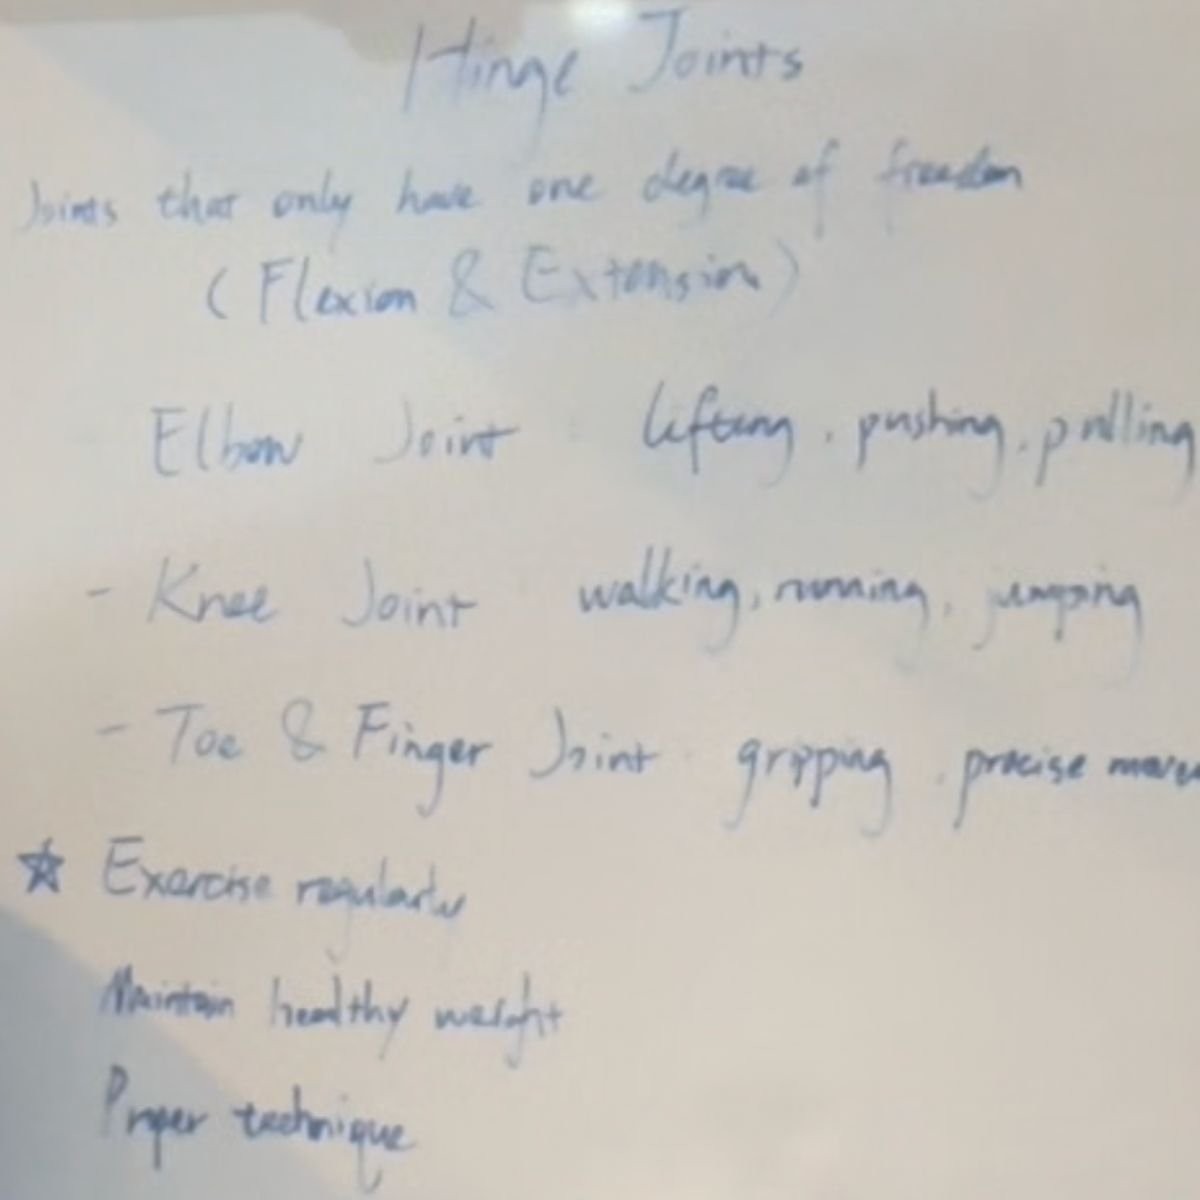 Hinge Joints
Joints that only have one degree of freedom
( Flexion & Extension )
Elbow Joint lifting, pushing, pulling
- Knee Joint walking, running, jumping
- Toe & Finger Joint gripping, precise movem
☆ Exercise regularly
Maintain healthy weight
Proper technique